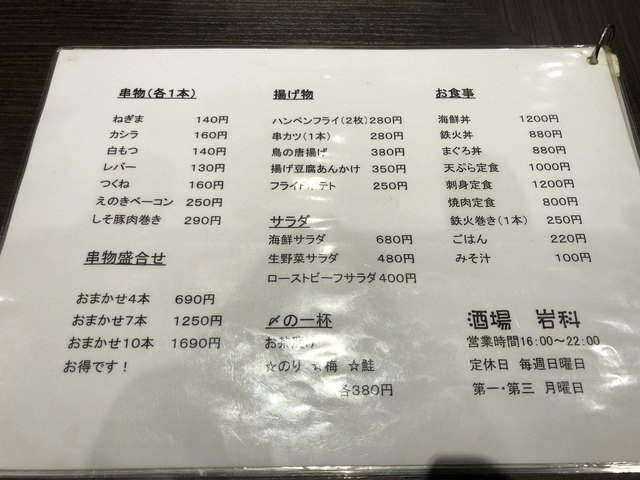 串物(各1本)
ねぎま 140円
カシラ 160円
白もつ 140円
レバー 130円
つくね 160円
えのきベーコン 250円
しそ豚肉巻き 290円
串物盛合せ
おまかせ4本 690円
おまかせ7本 1250円
おまかせ10本 1690円
お得です!
揚げ物
ハンペンフライ(2枚)280円
串カツ(1本) 280円
鳥の唐揚げ 380円
揚げ豆腐あんかけ 350円
フライドポテト 250円
サラダ
海鮮サラダ 680円
生野菜サラダ 480円
ローストビーフサラダ400円
〆の一杯
お茶漬け
☆のり ☆梅 ☆鮭
各380円
お食事
海鮮丼 1200円
鉄火丼 880円
まぐろ丼 880円
天ぷら定食 1000円
刺身定食 1200円
焼肉定食 800円
鉄火巻き(1本) 250円
ごはん 220円
みそ汁 100円
酒場 岩科
営業時間16:00~22:00
定休日 毎週日曜日
第一・第三 月曜日